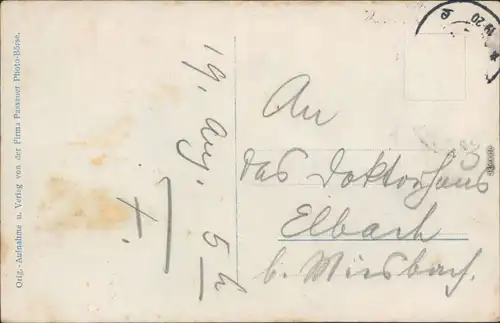 Orig.-Aufnahme u. Verlag von der Firma Passauer Photo-Börse.
19. Aug. 5 h
An
das Doktorhaus
Elbach
b. Miesbach.